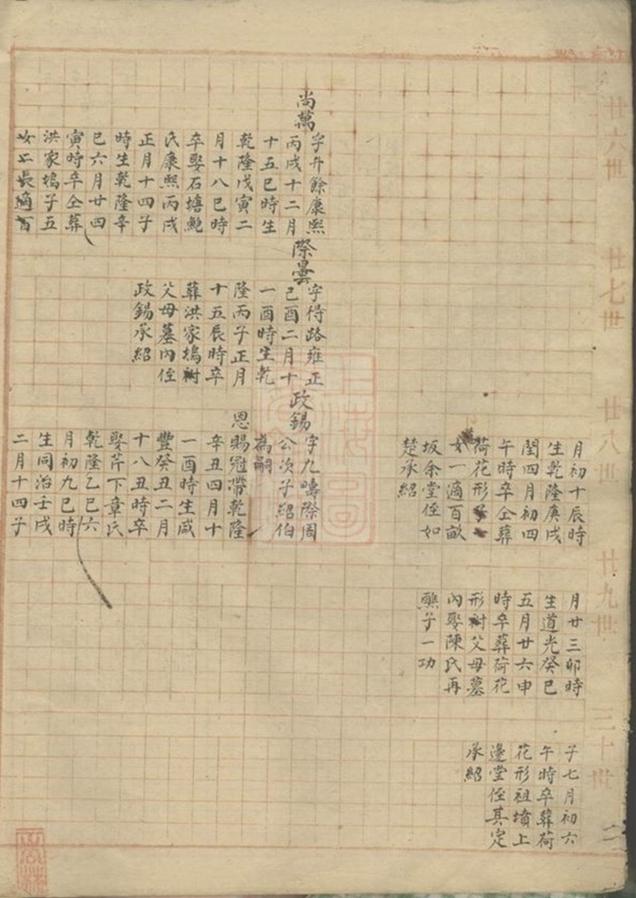 廿六世
廿七世
廿八世
廿九世
三十世
二
月初十辰時
生乾隆庚戌
閏四月初四
午時卒仝葬
荷花形子
女一適百畝
坂余堂侄如
楚承紹
月廿三卯時
生道光癸巳
五月廿六申
時卒葬荷花
形祔父母墓
內娶陳氏再
醮子一功
子七月初六
午時卒葬荷
花形祖墳上
邊堂侄其定
承紹
尚萬
字升餘康熙
丙戌十二月
十五巳時生
乾隆戊寅二
月十八巳時
卒娶石墻鮑
氏康熙丙戌
正月十四子
時生乾隆辛
巳六月廿四
寅時卒仝葬
洪家塢子五
女二長適百
際曇
字得路雍正
己酉二月十
一酉時生乾
隆丙子正月
十五辰時卒
葬洪家塢祔
父母墓內侄
政錫承紹
政錫
字九疇際周
公次子紹伯
為嗣
恩賜冠帶乾隆
辛丑四月十
一酉時生咸
豐癸丑二月
十八丑時卒
娶芹下章氏
乾隆乙巳六
月初九巳時
生同治壬戌
二月十四子